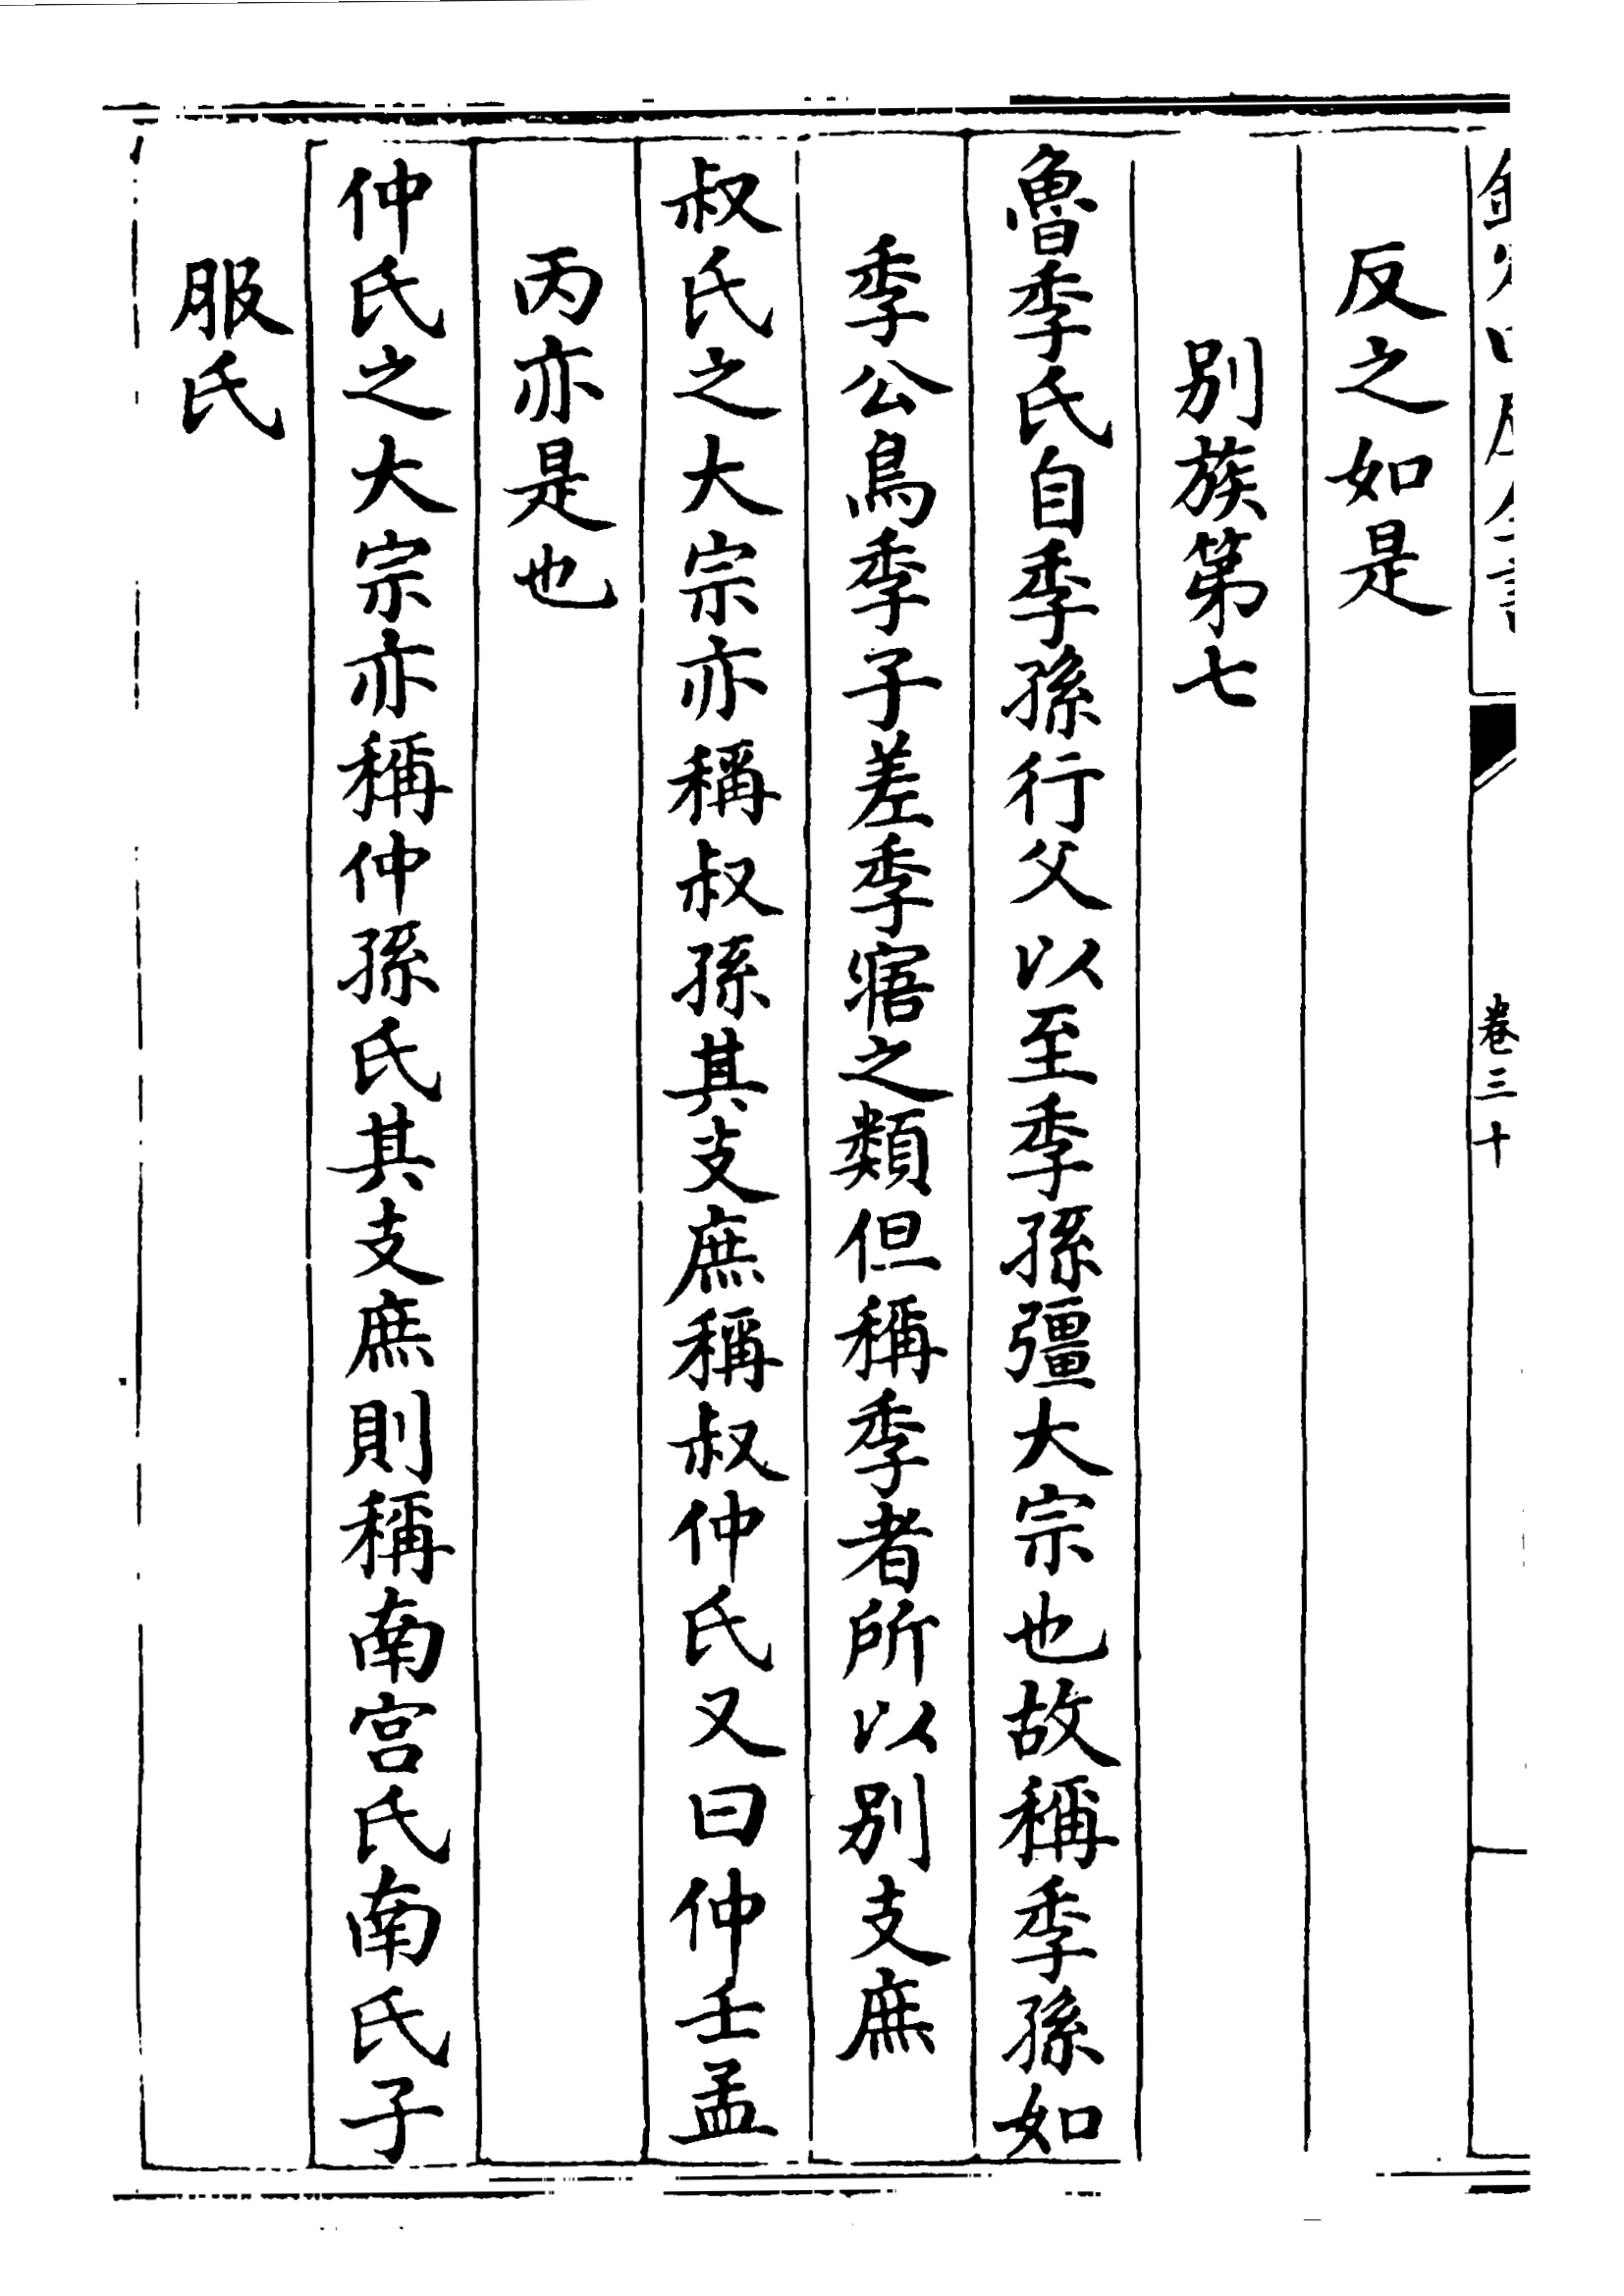 反之如是
別族第七
魯季氏自季孫行父以至季孫彊大宗也故稱季孫如
季公鳥季子差季寤之類但稱季者所以別支庶
叔氏之大宗亦稱叔孫其支庶稱叔仲氏又曰仲壬孟
丙亦是也
仲氏之大宗亦稱仲孫氏其支庶則稱南宮氏南氏子
服氏
卷三十